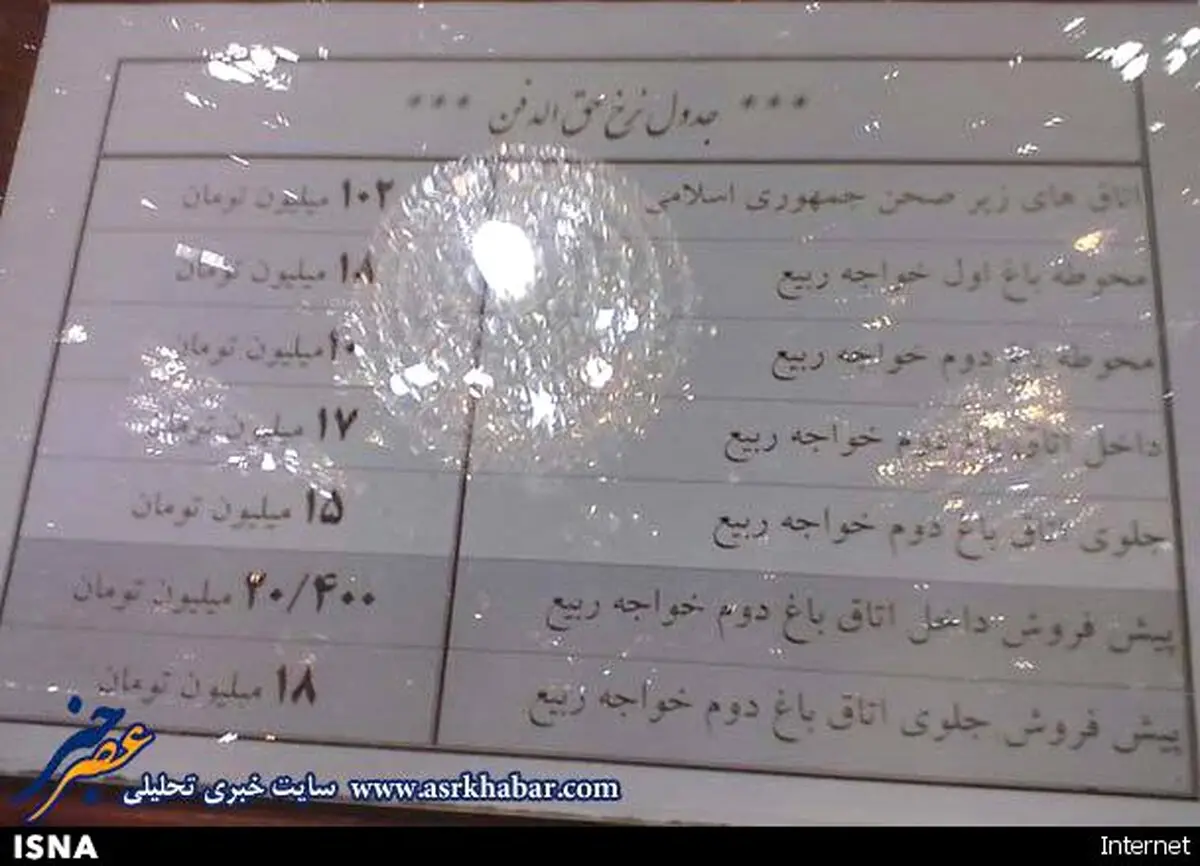 *** جدول نرخ حق الدفن ***
اتاق های زیر صحن جمهوری اسلامی ۱۰۲ میلیون تومان
محوطه باغ اول خواجه ربیع ۱۸ میلیون تومان
محوطه باغ دوم خواجه ربیع ۱۰ میلیون تومان
داخل اتاق باغ دوم خواجه ربیع ۱۷ میلیون تومان
جلوی اتاق باغ دوم خواجه ربیع ۱۵ میلیون تومان
پیش فروش داخل اتاق باغ دوم خواجه ربیع ۲۰/۴۰۰ میلیون تومان
پیش فروش جلوی اتاق باغ دوم خواجه ربیع ۱۸ میلیون تومان
عصر خبر سایت خبری تحلیلی www.asrkhabar.com
ISNA Internet